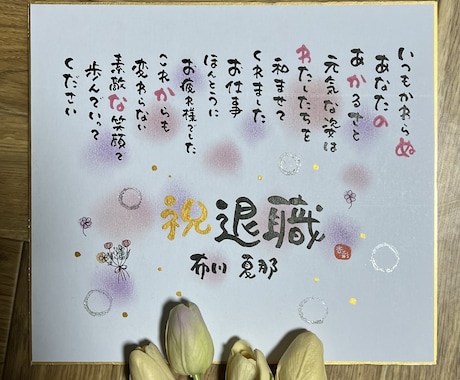 いつもかわらぬ
あなたの
あかるさと
元気な姿は
わたしたちを
和ませて
くれました
お仕事
ほんとうに
お疲れ様でした
これからも
変わらない
素敵な笑顔で
歩んでいって
ください
祝退職
布川 夏那